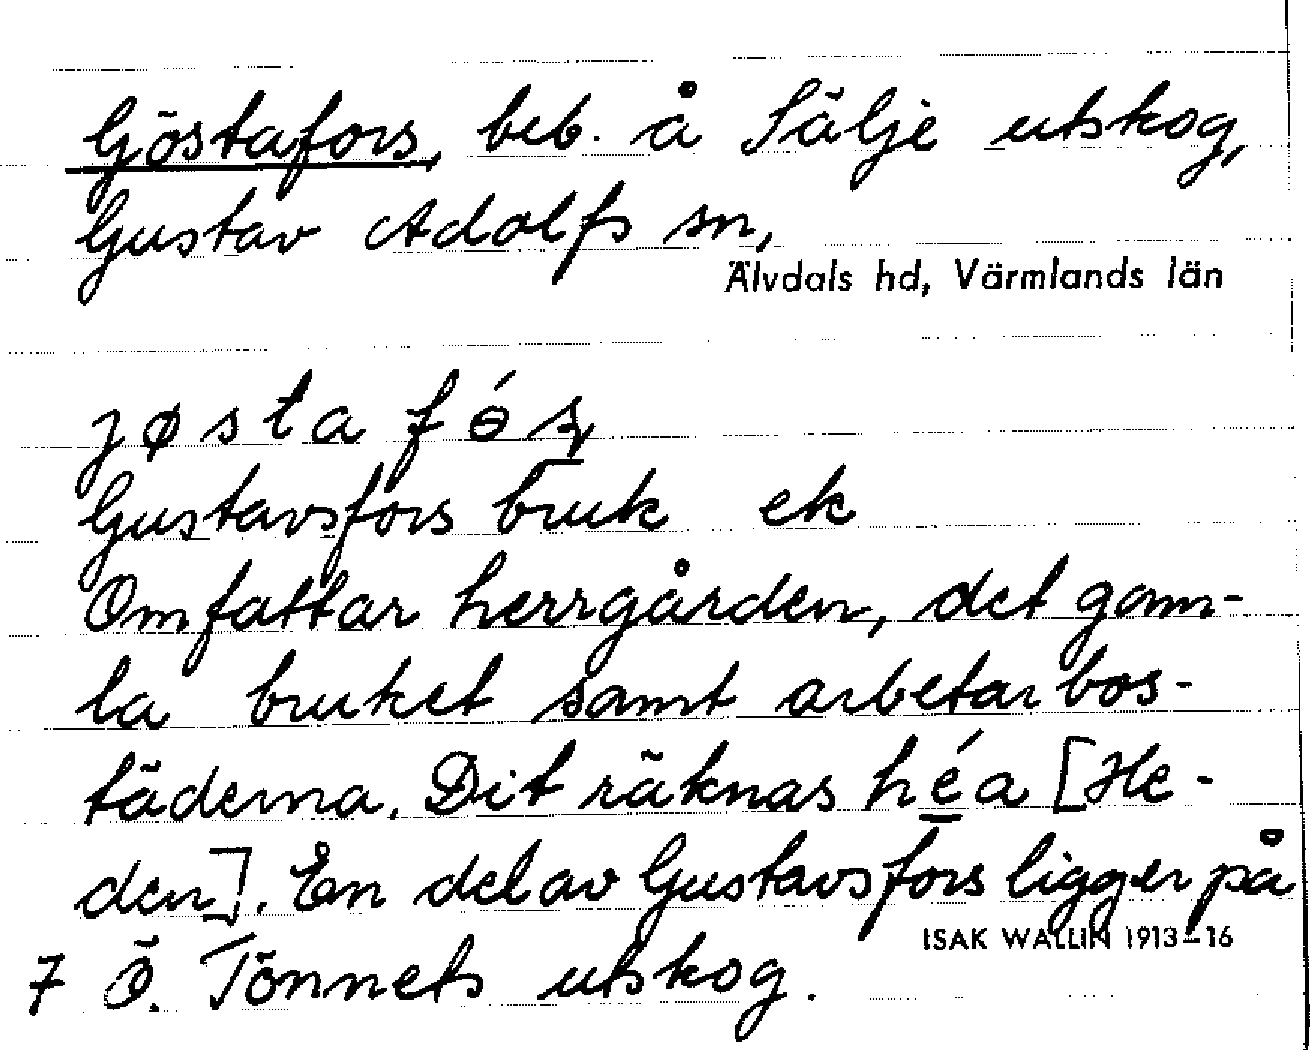 Göstafors, beb. å Sälje utskog,
Gustav Adolfs sn,
Älvdals hd, Värmlands län
Gustavsfors bruk ek
Omfattar herrgården, det gam-
la bruket samt arbetarbos-
täderna. Dit räknas héa [He-
den]. En del av Gustavsfors ligger på
ISAK WALLIN 1913-16
7 Ö. Tönnets utskog.